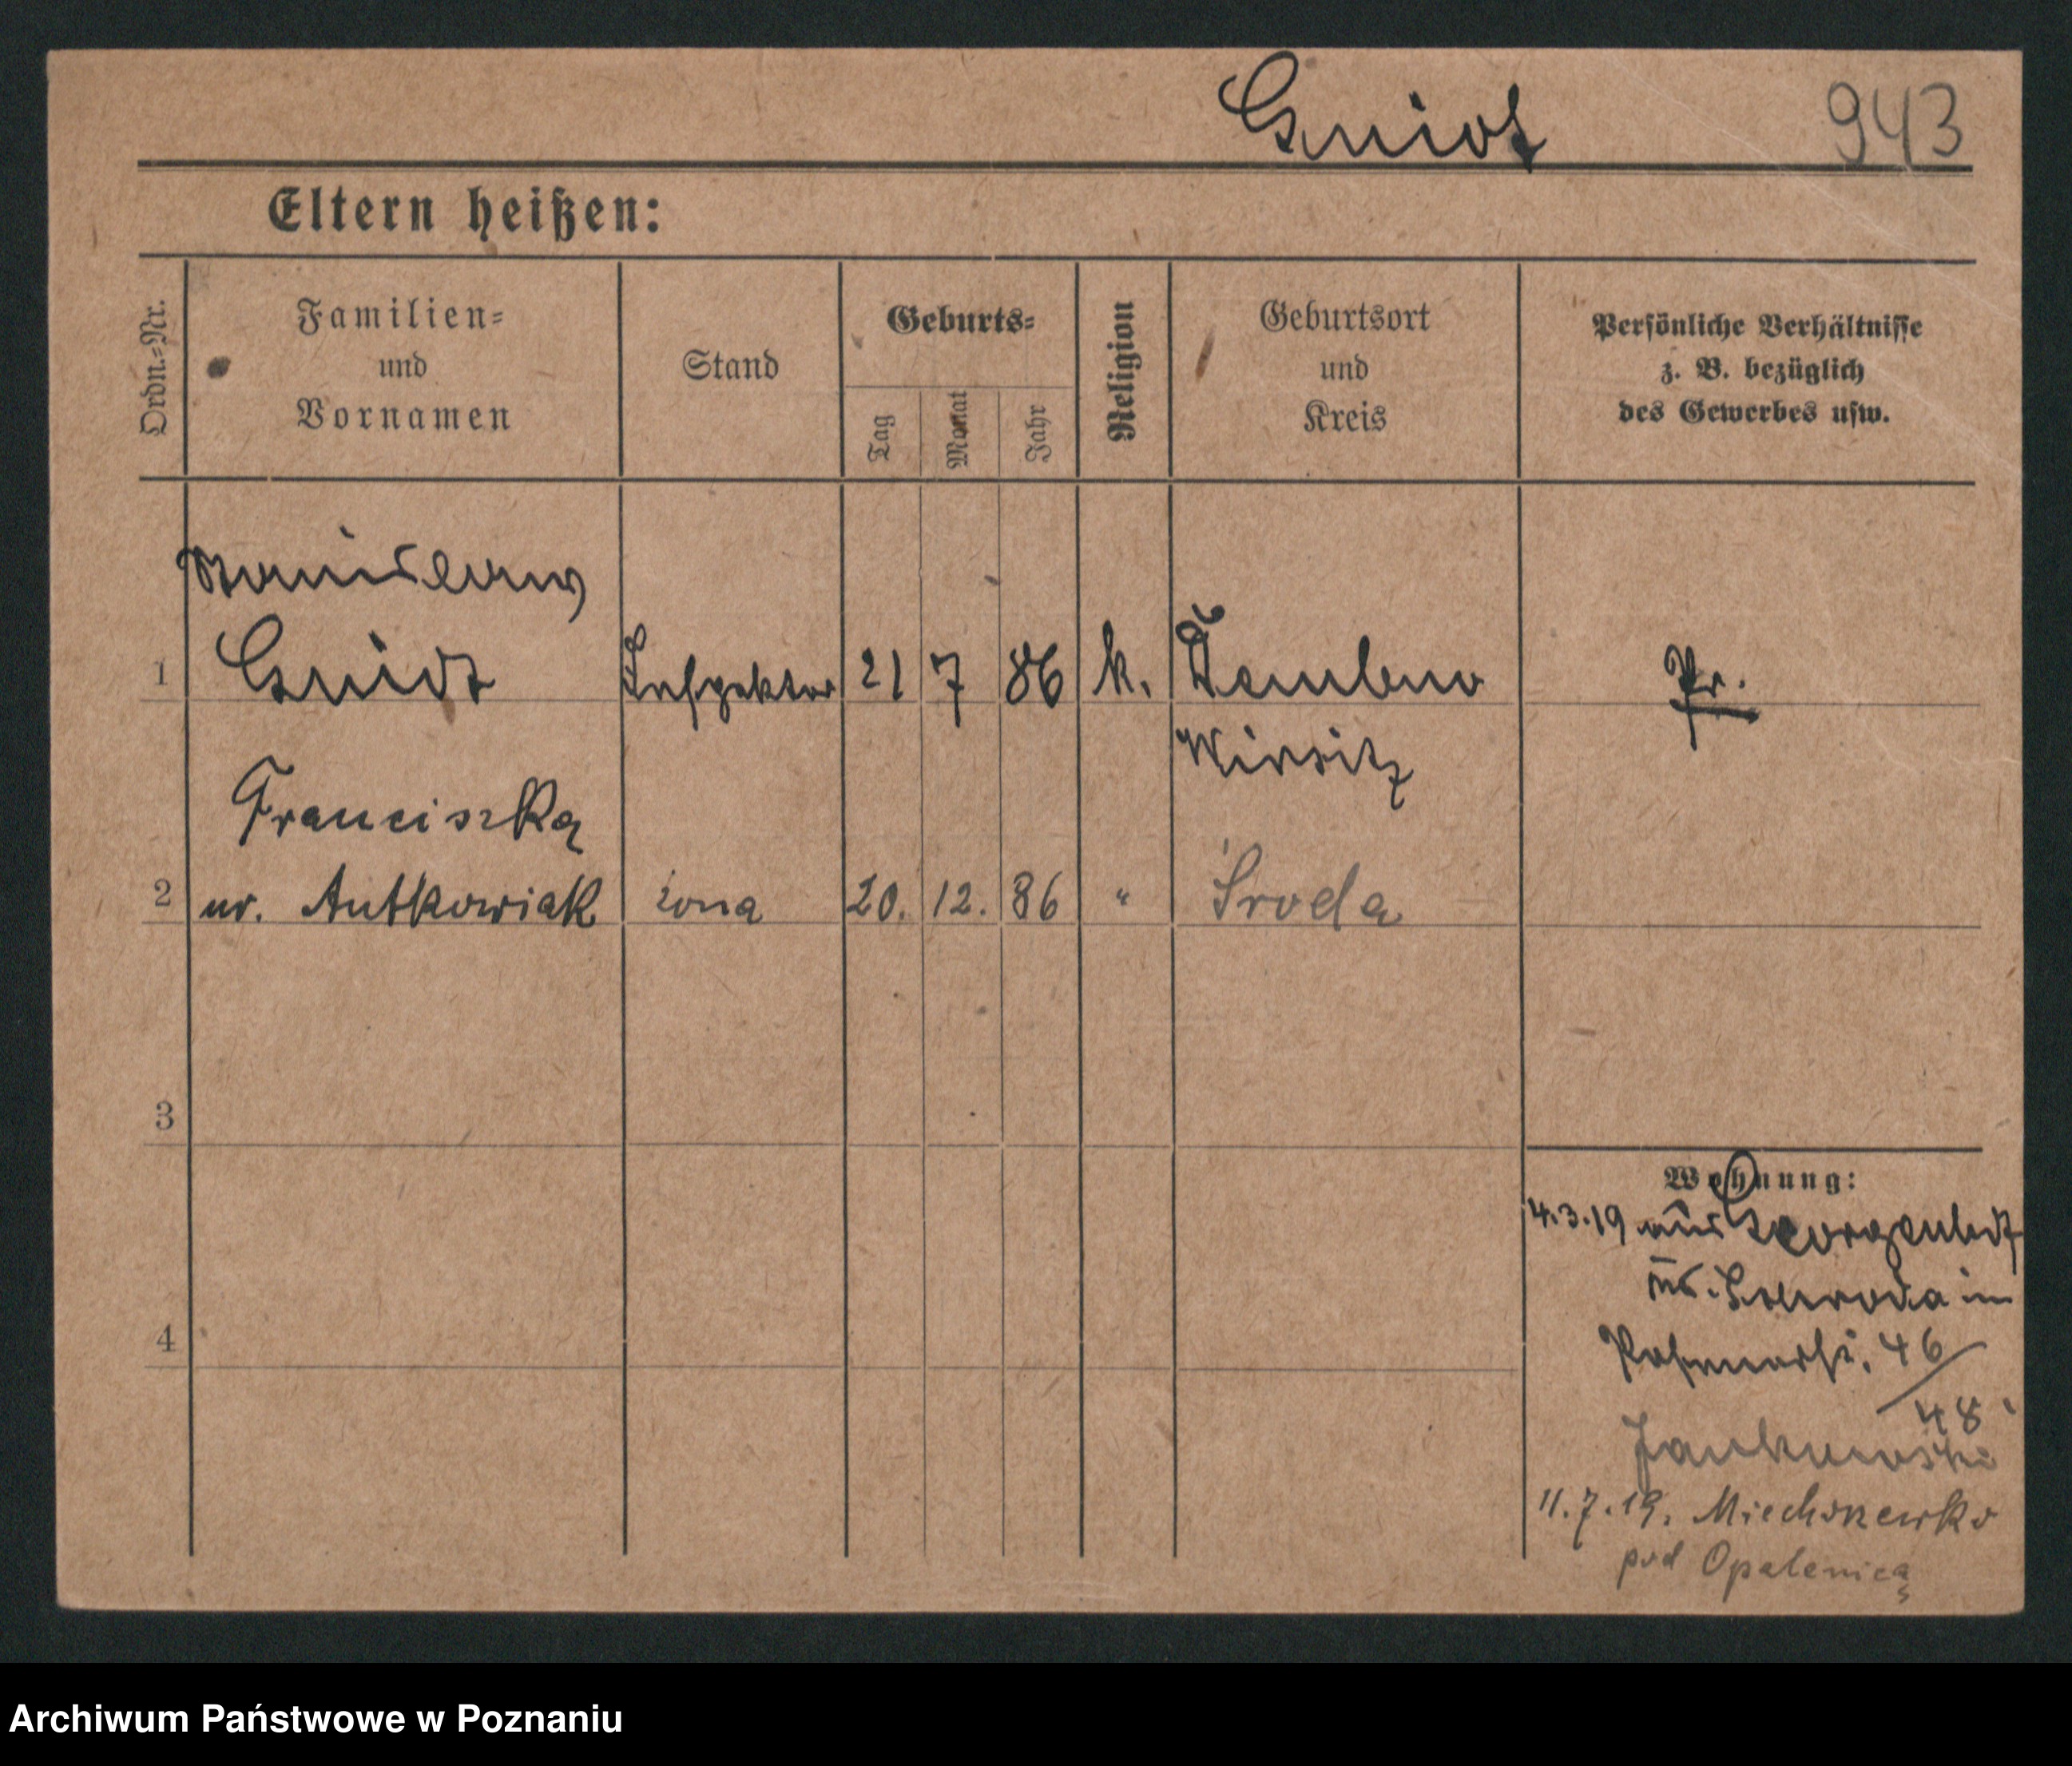 Gniot 943
Eltern heißen:
Ordn.-Nr.
Familien-
und
Vornamen
Stand
Geburts-
Tag
Monat
Jahr
Religion
Geburtsort
und
Kreis
Persönliche Verhältnisse
z. B. bezüglich
des Gewerbes usw.
Stanislaus
1 Gniot Inspektor 21 7 86 k. Dembno Pr.
Wirsitz
Franciszka
2 ur. Antkowiak żona 20. 12. 86 " Środa
3
4
Wohnung:
4.3.19 aus
Schroda in
46/
48
Jankowski
11.7.19.
pod Opalenicą
Archiwum Państwowe w Poznaniu